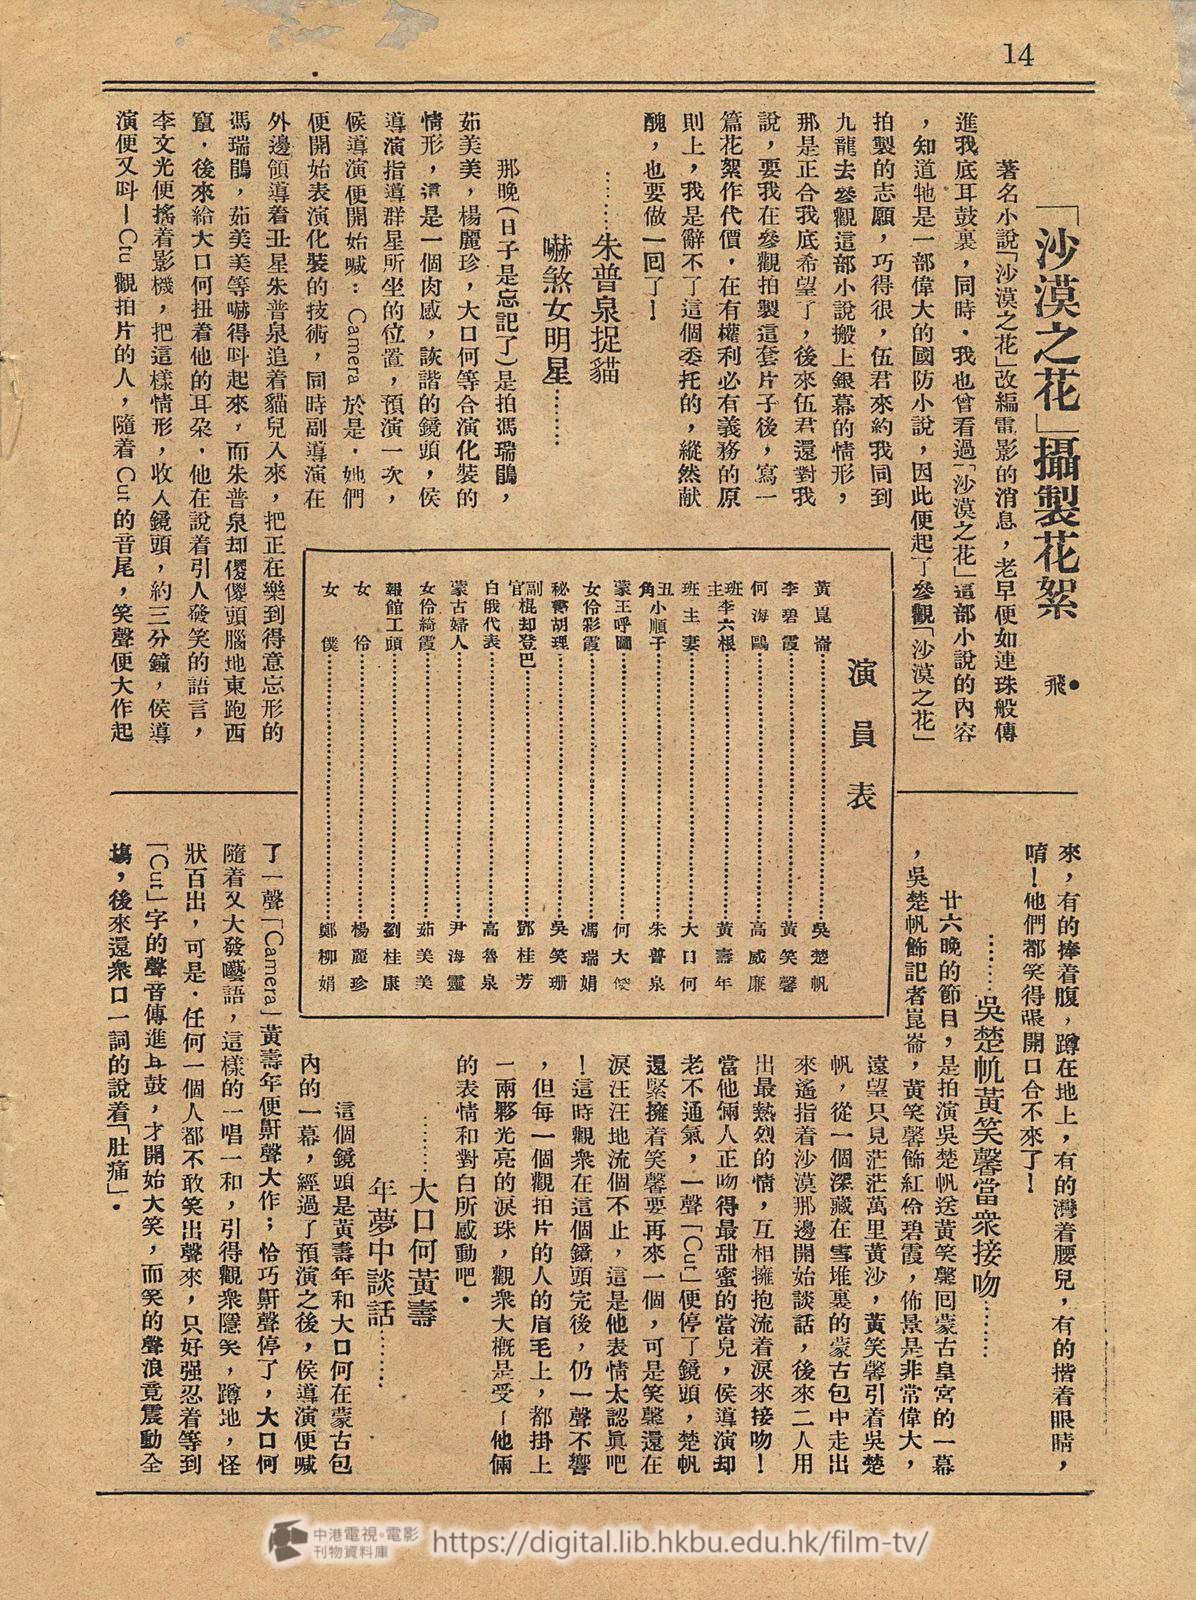 14
「沙漠之花」攝製花絮
飛•
著名小說「沙漠之花」改編電影的消息，老早便如連珠般傳
進我底耳鼓裏，同時．我也曾看過「沙漠之花」這部小說的內容
，知道牠是一部偉大的國防小說，因此便起了參觀「沙漠之花」
拍製的志願，巧得很，伍君來約我同到
九龍去參觀這部小說搬上銀幕的情形，
那是正合我底希望了，後來伍君還對我
說，要我在參觀拍製這套片子後，寫一
篇花絮作代價，在有權利必有義務的原
則上，我是辭不了這個委托的，縱然献
醜，也要做一囘了！
………朱普泉捉貓
嚇煞女明星………
那晚（日子是忘記了）是拍馮瑞鵑，
茹美美，楊麗珍，大口何等合演化裝的
情形，這是一個肉感，詼諧的鏡頭，侯
導演指導群星所坐的位置，預演一次，
候導演便開始喊：Camera 於是．她們
便開始表演化裝的技術，同時副導演在
外邊領導着丑星朱普泉追着貓兒入來，把正在樂到得意忘形的
馮瑞鵑，茹美美等嚇得呌起來，而朱普泉却儍儍頭腦地東跑西
竄．後來給大口何扭着他的耳朶．他在說着引人發笑的語言，
李文光便搖着影機，把這樣情形，收入鏡頭，約三分鐘，侯導
演便又呌—Cut 觀拍片的人，隨着 Cut 的音尾，笑聲便大作起
演員表
黃崑崙………吳楚帆
李碧霞………黃笑馨
何海鷗………高威廉
班主李六根………黃壽年
班主妻………大口何
丑角小順子………朱普泉
蒙王呼圖………何大傻
女伶彩霞………馮瑞娟
秘書胡理………吳笑珊
副官棍却登巴………鄧桂芳
白俄代表………高魯泉
蒙古婦人………尹海靈
女伶綺霞………茹美美
報館工頭………劉桂康
女伶………楊麗珍
女僕………鄭柳娟
來，有的捧着腹，蹲在地上，有的灣着腰兒，有的揩着眼睛，
唷！他們都笑得張開口合不來了！
………吳楚帆黃笑馨當衆接吻………
廿六晚的節目，是拍演吳楚帆送黃笑馨囘蒙古皇宮的一幕
，吳楚帆飾記者崑崙，黃笑馨飾紅伶碧霞，佈景是非常偉大，
遠望只見茫茫萬里黃沙，黃笑馨引着吳楚
帆，從一個深藏在雪堆裏的蒙古包中走出
來遙指着沙漠那邊開始談話，後來二人用
出最熱烈的情，互相擁抱流着淚來接吻！
當他倆人正吻得最甜蜜的當兒，侯導演却
老不通氣，一聲「Cut」便停了鏡頭，楚帆
還緊擁着笑馨要再來一個，可是笑馨還在
淚汪汪地流個不止，這是他表情太認眞吧
！這時觀衆在這個鏡頭完後，仍一聲不響
，但每一個觀拍片的人的眉毛上，都掛上
一兩夥光亮的淚珠，觀衆大槪是受—他倆
的表情和對白所感動吧．
………大口何黃壽
年夢中談話………
這個鏡頭是黃壽年和大口何在蒙古包
內的一幕，經過了預演之後，侯導演便喊
了一聲「Camera」黃壽年便鼾聲大作；恰巧鼾聲停了，大口何
隨着又大發囈語，這樣的一唱一和，引得觀衆隱笑，蹲地，怪
狀百出，可是．任何一個人都不敢笑出聲來，只好强忍着等到
「Cut」字的聲音傳進耳鼓，才開始大笑，而笑的聲浪竟震動全
塲，後來還衆口一詞的說着「肚痛」．
中港電視·電影
刊物資料庫
https://digital.lib.hkbu.edu.hk/film-tv/